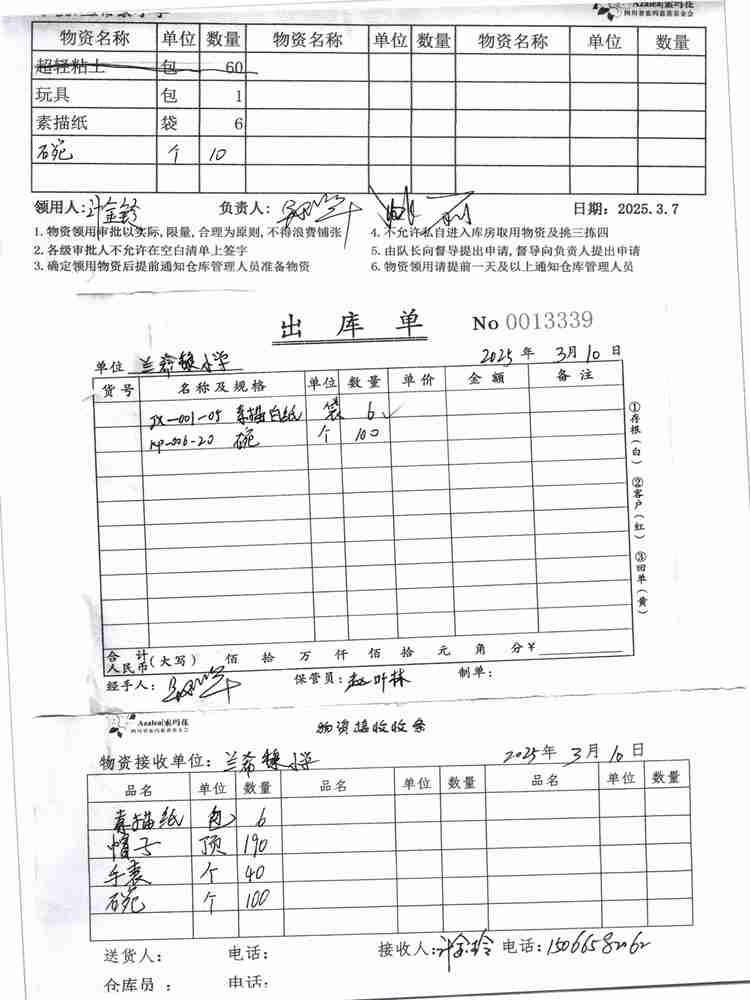 Azalea|索玛花
四川省索玛慈善基金会
物资名称 单位 数量 物资名称 单位 数量 物资名称 单位 数量
超轻粘土 包 60
玩具 包 1
素描纸 袋 6
碗 个 10
领用人: 负责人: 日期: 2025.3.7
1. 物资领用审批以实际, 限量, 合理为原则, 不得浪费铺张
4. 不允许私自进入库房取用物资及挑三拣四
2. 各级审批人不允许在空白清单上签字
5. 由队长向督导提出申请, 督导向负责人提出申请
3. 确定领用物资后提前通知仓库管理人员准备物资
6. 物资领用请提前一天及以上通知仓库管理人员
出库单 No 0013339
单位 兰希镇小学 2025 年 3月 10 日
货号 名称及规格 单位 数量 单价 金额 备注
JX-001-05 素描白纸 袋 6
NP-006-20 碗 个 100
①存根(白) ②客户(红) ③回单(黄)
合计人民币(大写) 佰 拾 万 仟 佰 拾 元 角 分 ¥
经手人: 保管员: 赵叶林 制单:
Azalea|索玛花
四川省索玛慈善基金会
物资接收收条
物资接收单位: 兰希镇小学 2025年 3月 10日
品名 单位 数量 品名 单位 数量 品名 单位 数量
素描纸 包 6
帽子 顶 190
手表 个 40
碗 个 100
送货人: 电话: 接收人: 电话:
仓库员: 电话: